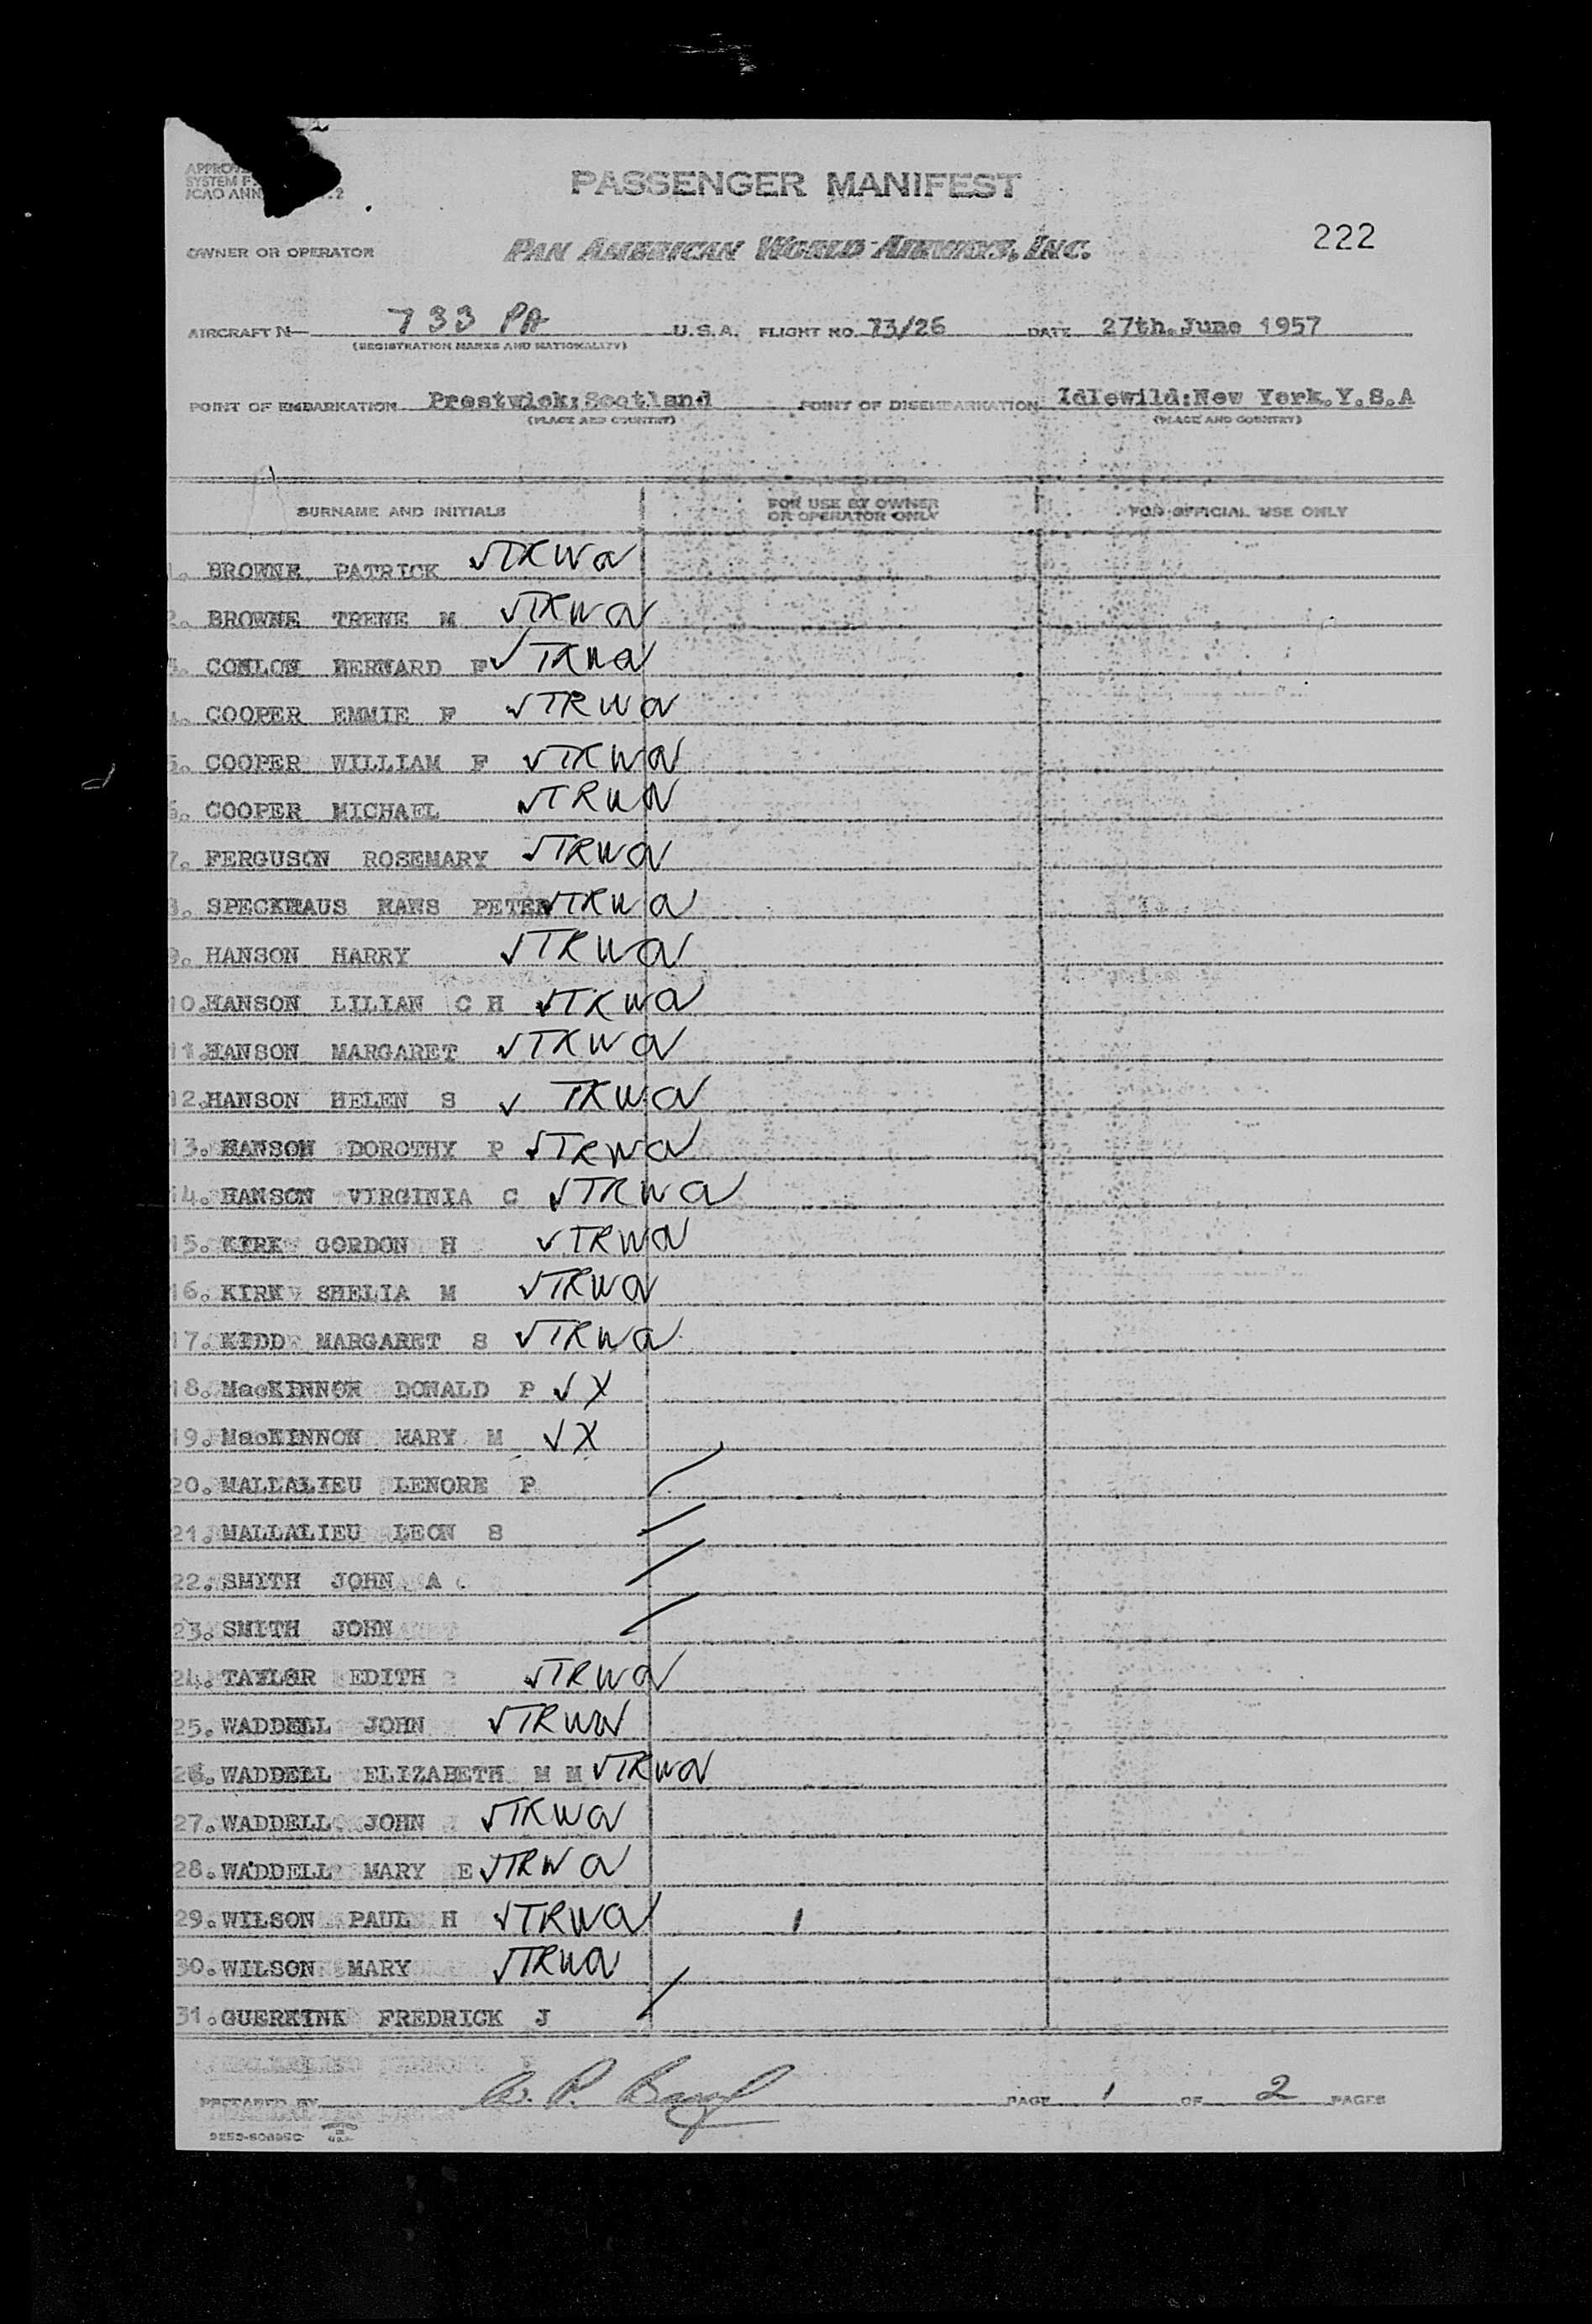 PASSENGER MANIFEST
OWNER OR OPERATOR PAN AMERICAN WORLD AIRWAYS, INC. 222
AIRCRAFT N 733 PA U.S.A. FLIGHT NO. 73/26 DATE 27th.June 1957
(REGISTRATION MARKS AND NATIONALITY)
POINT OF EMBARKATION Prestwick:Scotland POINT OF DISEMBARKATION Idlewild:New York.Y.S.A
(PLACE AND COUNTRY) (PLACE AND COUNTRY)
SURNAME AND INITIALS FOR USE BY OWNER OR OPERATOR ONLY FOR OFFICIAL USE ONLY
1. BROWNE PATRICK √TRWA
2. BROWNE TRENE M √TRWA
3. CONLON BERNARD F √TRWA
4. COOPER EMMIE F √TRWA
5. COOPER WILLIAM F √TRWA
6. COOPER MICHAEL √TRWA
7. FERGUSON ROSEMARY √TRWA
8. SPECKHAUS HANS PETER √TRWA
9. HANSON HARRY √TRWA
10.HANSON LILIAN C H √TRWA
11.HANSON MARGARET √TRWA
12.HANSON HELEN S √ TRWA
13. HANSON DOROTHY P √TRWA
14. HANSON VIRGINIA C √TRWA
15. KIRK GORDON H √TRWA
16. KIRK SHELIA M √TRWA
17. KIDD MARGARET S √TRWA
18. MacKINNON DONALD P √ X
19. MacKINNON MARY M √ X
20. MALLALIEU LENORE P
21. MALLALIEU LEON S
22. SMITH JOHN A
23. SMITH JOHN
24. TAYLOR EDITH √TRWA
25. WADDELL JOHN √TRWA
26. WADDELL ELIZABETH M M √TRWA
27. WADDELL JOHN √TRWA
28. WADDELL MARY E √TRWA
29. WILSON PAUL H √TRWA
30. WILSON MARY √TRWA
31. GUERKINK FREDRICK J
PREPARED BY PAGE 1 OF 2 PAGES